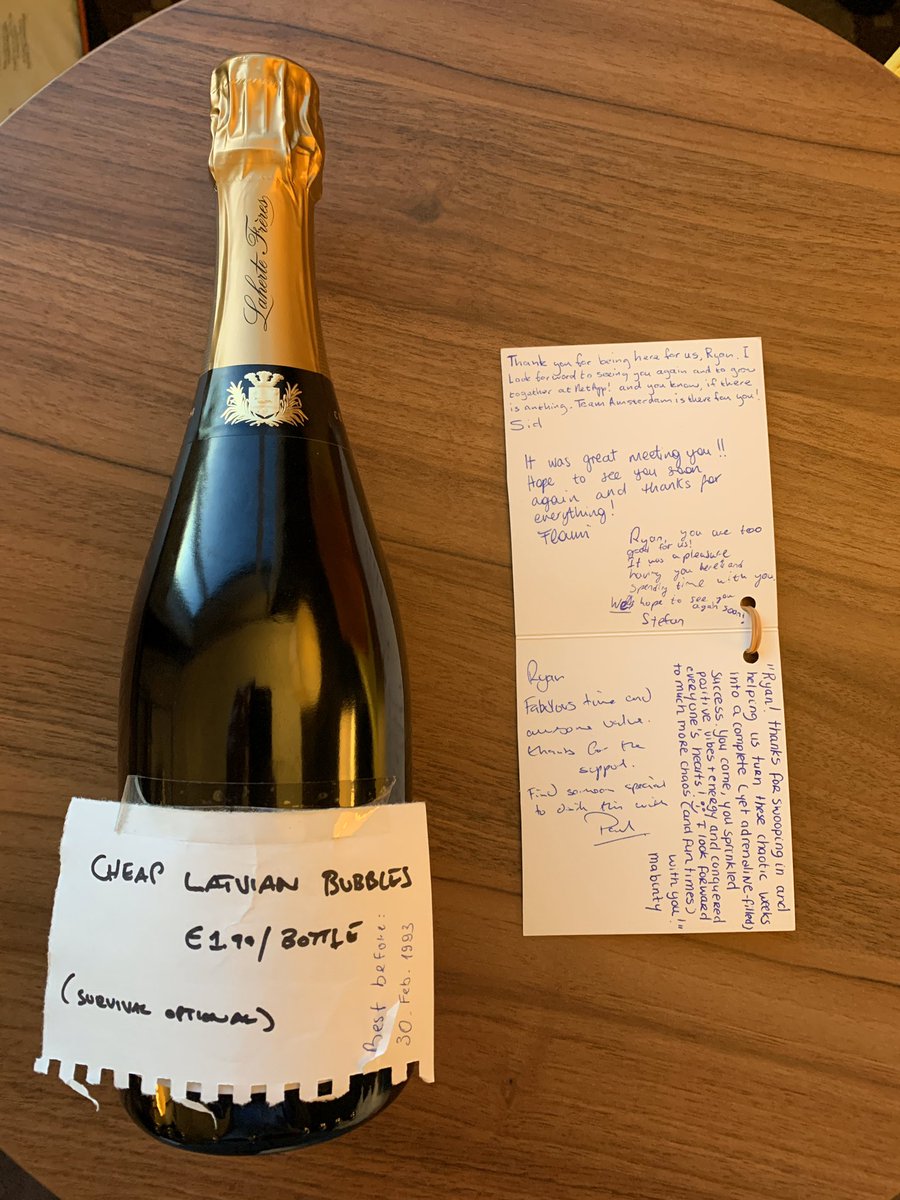 Laherte Frères
CHEAP LATVIAN BUBBLES
€1.90/BOTTLE
(SURVIVAL OPTIONAL)
Best before:
30. Feb. 1993
Thank you for being here for us, Ryan. I
Look forward to seeing you again and to grow
together at NetApp! and you know, if there
is anthing. Team Amsterdam is there for you!
Sid
It was great meeting you!!
Hope to see you soon
again and thanks for
everything!
Ryan, you are too
good for us!
It was a pleasure
having you here and
spending time with you
We hope to see you
again soon!
Stefan
Ryan
Fabulous time and
awesome value.
thanks for the
support.
Find someone special
to drink this with
Paul
"Ryan! thanks for swooping in and
helping us turn these chaotic weeks
into a complete (yet adrenaline-filled)
success. You came, you sprinkled
positive vibes + energy and conquered
everyone's hearts! I look forward
to much more chaos (and fun times)
with you!"
mabinty